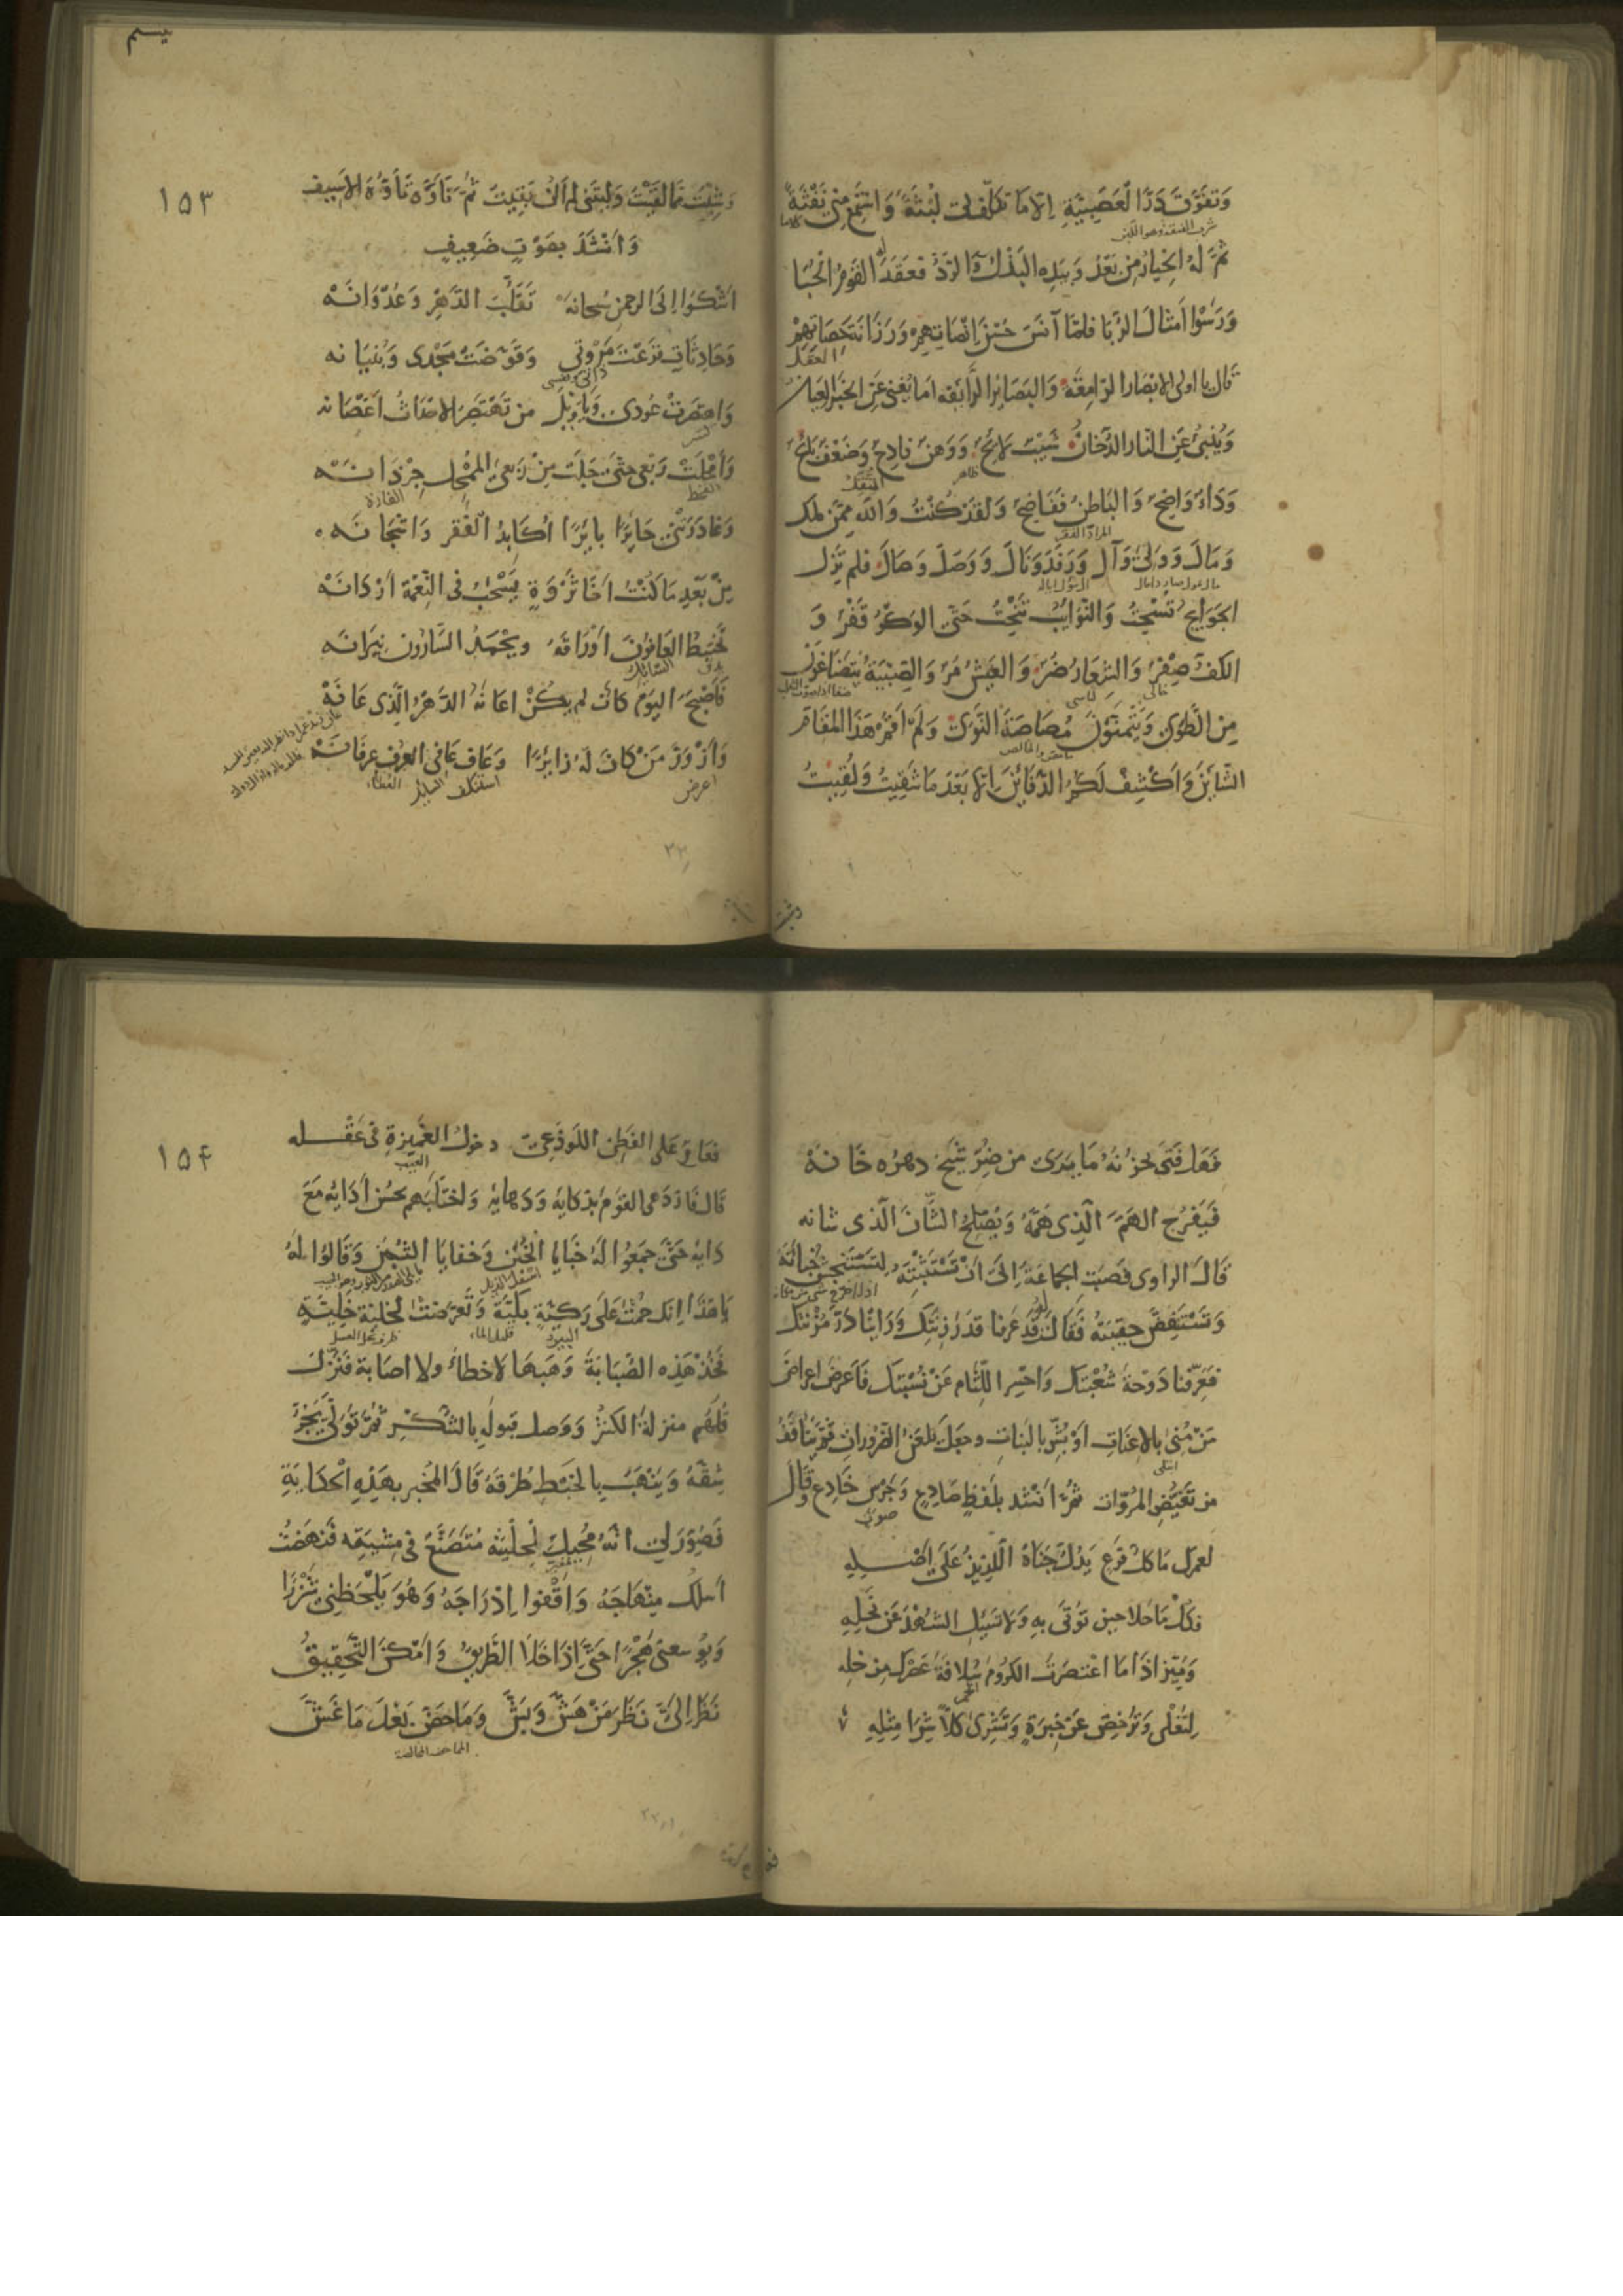 وَتَفَوَّقَ دَرَّ الْعَصَبِيَّةِ اِلَّا مَا تَكَلَّفَ لِي لُبْثَةً وَاسْتَمَعَ مِنِّي نَفْثَةً
ثُمَّ لَهُ الْخِيَارُ مِنْ بَعْدُ وَبِيَدِهِ الْبَذْلُ وَالرَّدُّ فَعَقَدَ لَهُ الْقَوْمُ الْحُبَا
وَرَسَوْا اَمْثَالَ الرُّبَا فَلَمَّا آنَسَ حُسْنَ اِنْصَاتِهِمْ وَرَزَانَةَ حَصَاتِهِمْ
العقل
قَالَ يَا اُولِي الْاَبْصَارِ الرَّامِقَةِ وَالْبَصَائِرِ الرَّائِقَةِ اَمَا يُغْنِي عَنِ الْخَبَرِ الْعِيَانُ
وَيُنْبِئُ عَنِ النَّارِ الدُّخَانُ شَيْبٌ لَائِحٌ وَوَهْنٌ فَادِحٌ وَضَعْفٌ بَائِحٌ
ظاهر
المثقل
وَدَاءٌ وَاضِحٌ وَالْبَاطِنُ فَفَاضِحٌ وَلَقَدْ كُنْتُ وَاللّٰهِ مِمَّنْ مَلَكَ
وَمَالَ وَوَلِيَ وَآلَ وَرَفَدَ وَنَالَ وَوَصَلَ وَصَالَ فَلَمْ تَزَلِ
الْجَوَائِحُ تَسْحَتُ وَالنَّوَائِبُ تَنْحَتُ حَتَّى الْوَكْرُ قَفْرٌ وَ
الْكَفُّ صِفْرٌ وَالشِّعَارُ ضُرٌّ وَالْعَيْشُ مُرٌّ وَالصِّبْيَةُ يَتَضَاغَوْنَ
خالی
مِنَ الطَّوَى وَيَتَمَنَّوْنَ مُصَاصَةَ النَّوَى وَلَمْ اَقُمْ هٰذَا الْمَقَامَ
الشَّائِنَ وَاَكْشِفْ لَكُمُ الدَّفَائِنَ اِلَّا بَعْدَ مَا شَقِيتُ وَلَقِيتُ
١٥٣
وَشِبْتُ مِمَّا لَقِيتُ وَلَيْتَنِي لَمْ اَكُنْ بَقِيتُ ثُمَّ تَاَوَّهَ تَاَوُّهَ الْاَسِيفِ
وَاَنْشَدَ بِصَوْتٍ ضَعِيفٍ
اَشْكُوا اِلَى الرَّحْمٰنِ سُبْحَانَهُ تَقَلُّبَ الدَّهْرِ وَعُدْوَانَهُ
وَحَادِثَاتٍ قَرَعَتْ مَرْوَتِي وَقَوَّضَتْ مَجْدِي وَبُنْيَانَهُ
وَاهْتَصَرَتْ عُودِي وَيَا وَيْلَ مَنْ تَهْتَصِرُ الْاَحْدَاثُ اَغْصَانَهُ
وَاَمْحَلَتْ رَبْعِي حَتَّى جَلَتْ مِنْ رَبْعِيَ الْمُمْحِلِ جِرْذَانَهُ
القحط
الفارة
وَغَادَرَتْنِي حَائِرًا بَائِرًا اُكَابِدُ الْفَقْرَ وَاَشْجَانَهُ
مِنْ بَعْدِ مَا كُنْتُ اَخَا ثَرْوَةٍ يَسْحَبُ فِي النِّعْمَةِ اَرْدَانَهُ
يَخْتَبِطُ الْعَافُونَ اَوْرَاقَهُ وَيَحْمَدُ السَّارُونَ نِيرَانَهُ
فَاَصْبَحَ الْيَوْمَ كَاَنْ لَمْ يَكُنْ اَعَانَهُ الدَّهْرُ الَّذِي عَانَهُ
وَازْوَرَّ مَنْ كَانَ لَهُ زَائِرًا وَعَافَ عَافِي الْعُرْفِ عِرْفَانَهُ
اعرض
استنكف
السایل
العطاء
فَهَلْ فَتًى يَحْزُنُهُ مَا يَرَى مِنْ ضُرِّ شَيْخٍ دَهْرُهُ خَانَهُ
فَيَفْرُجَ الْهَمَّ الَّذِي هَمَّهُ وَيُصْلِحَ الشَّانَ الَّذِي شَانَهُ
قَالَ الرَّاوِي فَصَبَتِ الْجَمَاعَةُ اِلَى اَنْ تَسْتَثْبِتَهُ لِتَسْتَنْجِشَ خُبْاَتَهُ
وَتَسْتَنْفِضَ حَقِيبَتَهُ فَقَالَتْ لَهُ قَدْ عَرَفْنَا قَدْرَ زِنَتِكَ وَرَاَيْنَا دَرَّ مُزْنَتِكَ
فَعَرِّفْنَا دَوْحَةَ شُعْبَتِكَ وَاحْسِرِ اللِّثَامَ عَنْ نِسْبَتِكَ فَاَعْرَضَ اِعْرَاضَ
مَنْ مُنِيَ بِالْاِعْنَاتِ اَوْ بُشِّرَ بِالْبَنَاتِ وَجَعَلَ يَلْعَنُ الضَّرُورَاتِ وَيَتَاَفَّفُ
ابتلی
مِنْ تَغَيُّضِ الْمُرُوَّاتِ ثُمَّ اَنْشَدَ بِلَفْظٍ صَادِعٍ وَجَرْسٍ خَادِعٍ وَقَالَ
صوت
لَعَمْرُكَ مَا كُلُّ فَرْعٍ يَدُلُّ جَنَاهُ اللَّذِيذُ عَلَى اَصْلِهِ
فَكُلْ مَا حَلَا حِينَ تُوْتَى بِهِ وَلَا تَسْئَلِ الشَّهْدَ عَنْ نَحْلِهِ
وَمَيِّزْ اِذَا مَا اعْتَصَرْتَ الْكُرُومَ سُلَافَةَ عَصْرِكَ مِنْ خَلِّهِ
الخمر
لِتُغْلِيَ وَتُرْخِصَ عَنْ خِبْرَةٍ وَتَشْرِيَ كُلًّا شِرَا مِثْلِهِ
١٥۴
فَعَارٌ عَلَى الْفَطِنِ اللَّوْذَعِيِّ دُخُولُ الْغَمِيزَةِ فِي عَقْلِهِ
العیب
قَالَ فَازْدَهَى الْقَوْمَ بِذَكَائِهِ وَدَهَائِهِ وَاخْتَلَبَهُمْ بِحُسْنِ اَدَائِهِ مَعَ
دَائِهِ حَتَّى جَمَعُوا لَهُ خَبَايَا الْخُبَنِ وَخَفَايَا الثُّبَنِ وَقَالُوا لَهُ
يَا هٰذَا اِنَّكَ حُمْتَ عَلَى رَكِيَّةٍ بَكِيَّةٍ وَتَعَرَّضْتَ لِخَلِيَّةٍ خَلِيَّةٍ
البير
قليل الماء
فَخُذْ هٰذِهِ الصُّبَابَةَ وَهَبْهَا لَا خَطَاءً وَلَا اِصَابَةً فَنَزَّلَ
قُلَّهُمْ مَنْزِلَةَ الْكُثْرِ وَوَصَلَ قَبُولَهُ بِالشُّكْرِ ثُمَّ تَوَلَّى يَجُرُّ
شِقَّهُ وَيَنْهَبُ بِالْخَبْطِ طُرْقَهُ قَالَ الْمُخْبِرُ بِهٰذِهِ الْحِكَايَةِ
فَصُوِّرَ لِي اَنَّهُ مُحِيلٌ لِحِلْيَتِهِ مُتَصَنِّعٌ فِي مِشْيَتِهِ فَنَهَضْتُ
اَسْلُكُ مِنْهَاجَهُ وَاَقْفُوا اَدْرَاجَهُ وَهُوَ يَلْحَظُنِي شَزْرًا
وَيُوسِعُنِي هَجْرًا حَتَّى اِذَا خَلَا الطَّرِيقُ وَاَمْكَنَ التَّحْقِيقُ
نَظَرَ اِلَيَّ نَظَرَ مَنْ هَشَّ وَبَشَّ وَمَاحَضَ بَعْدَ مَا غَشَّ